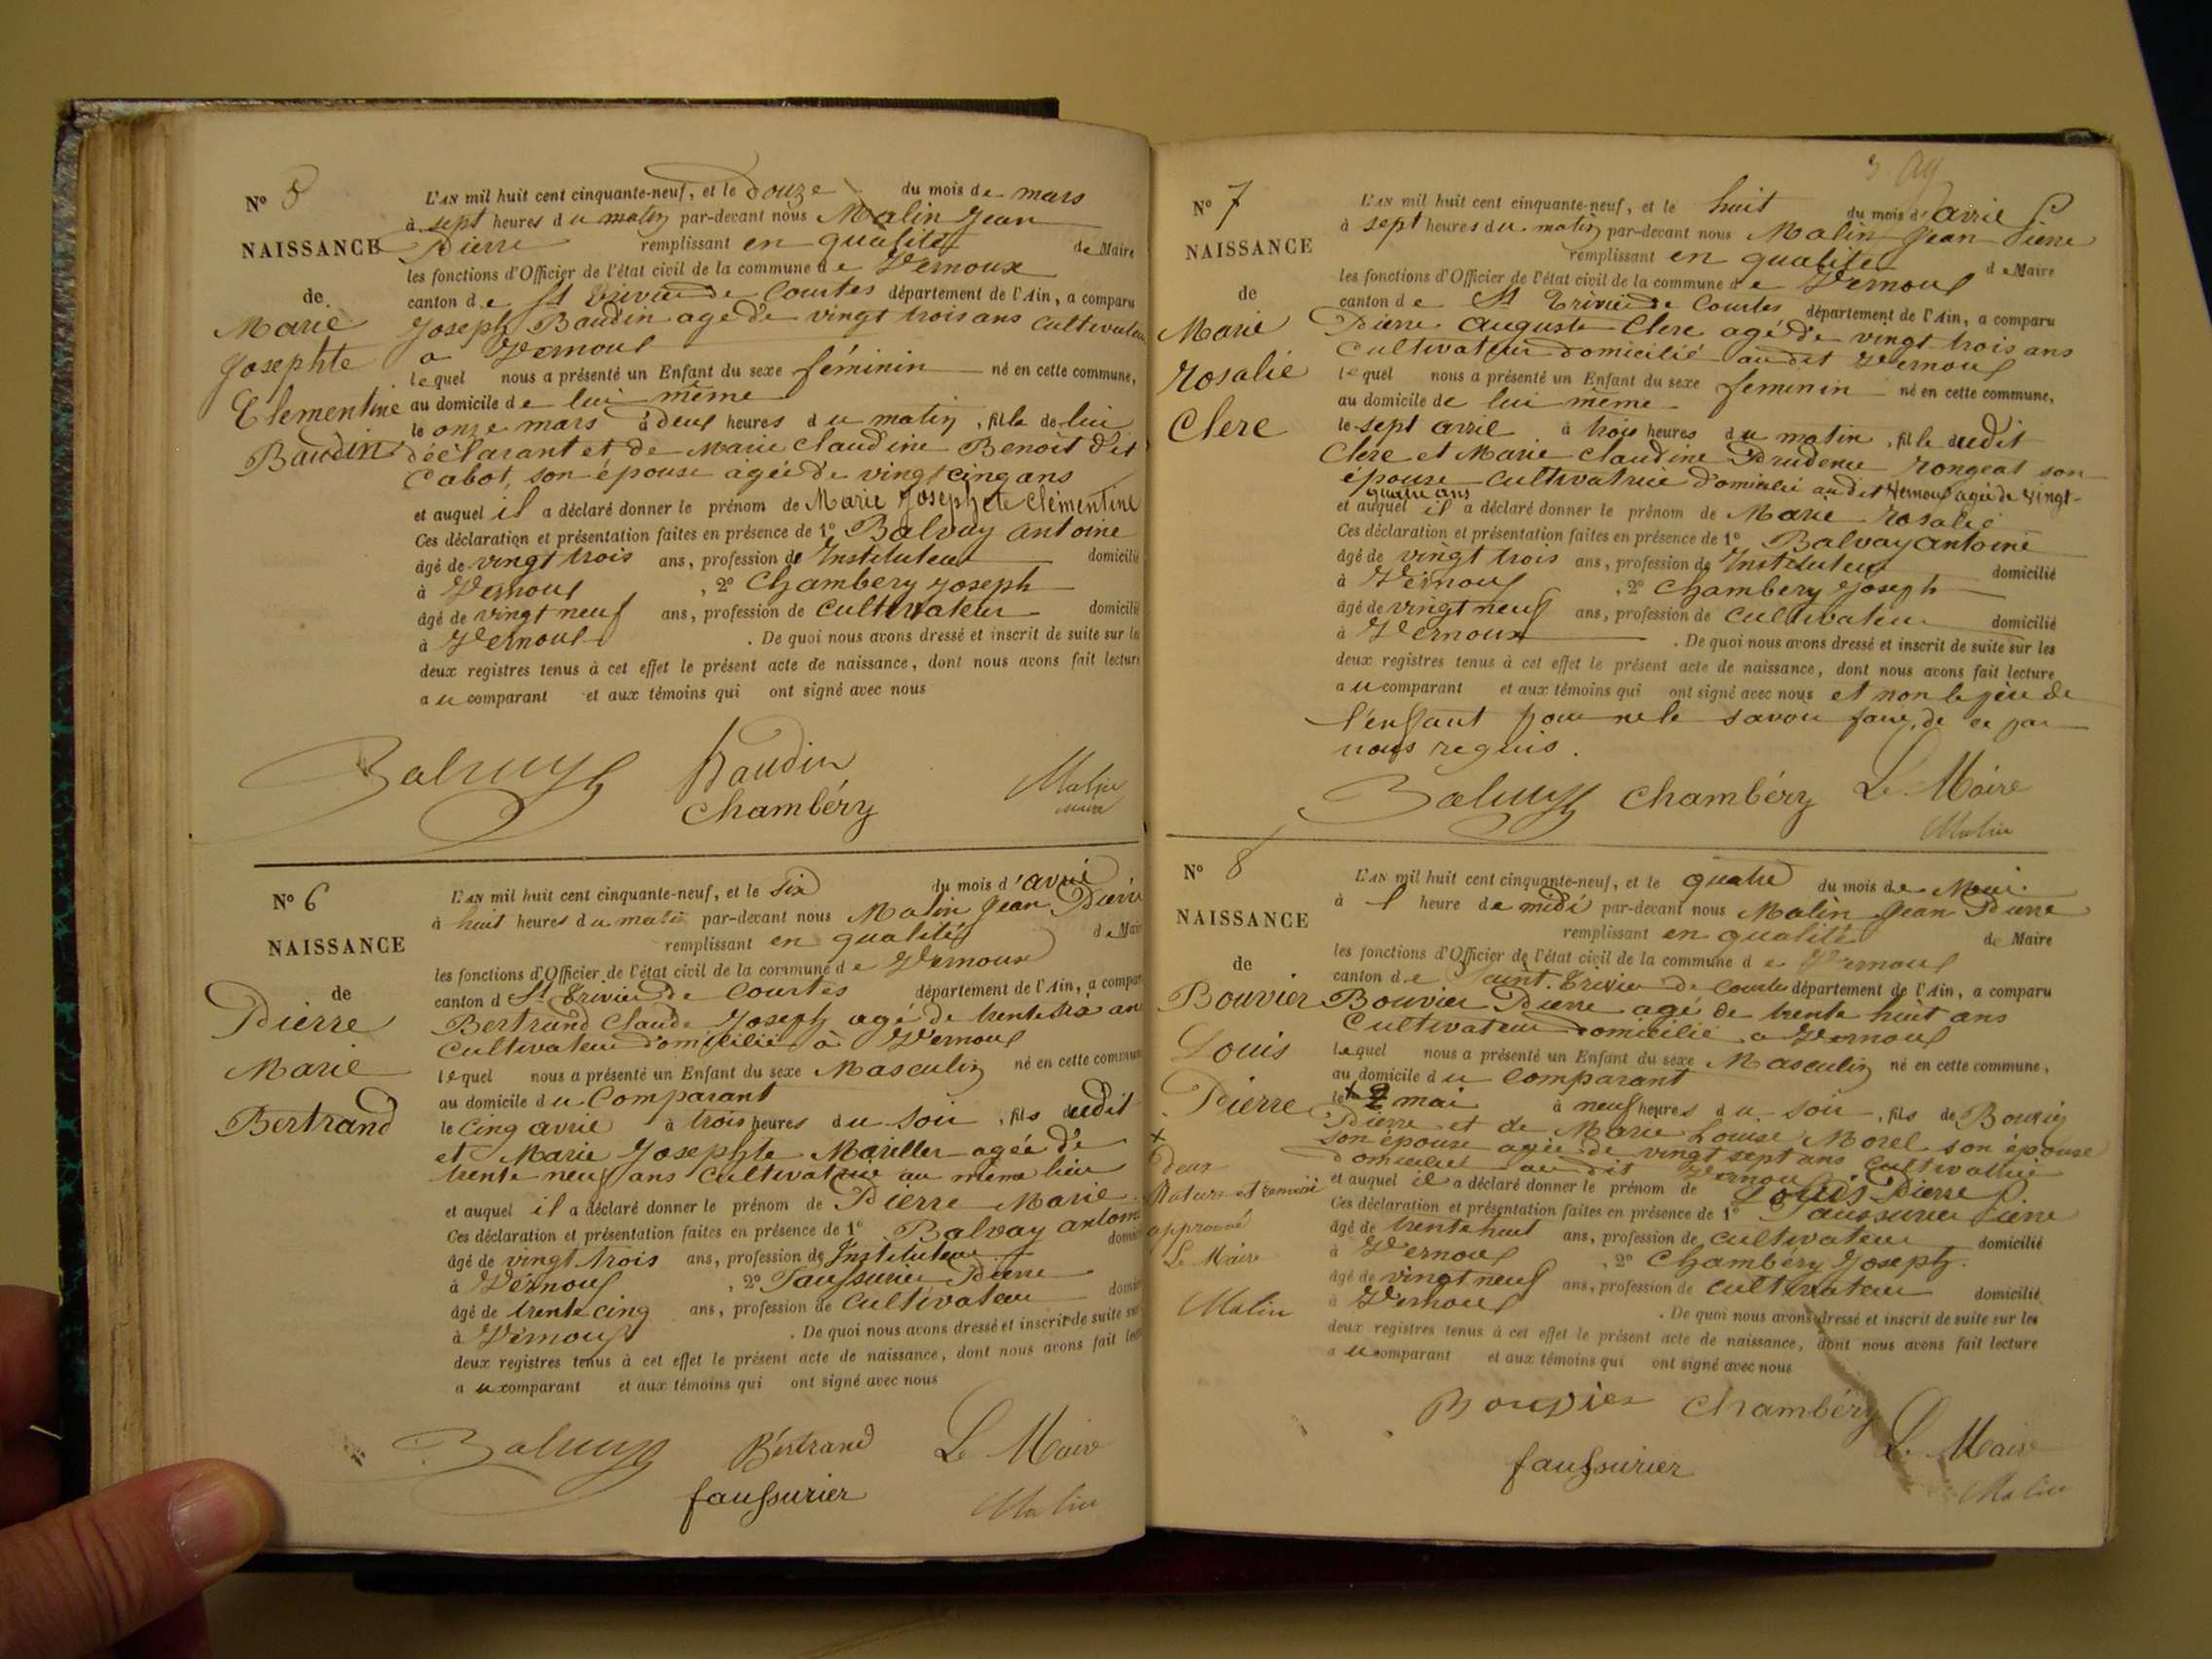 Nº 5
NAISSANCE
de
Marie
Josephte
Clementine
Baudin
L'AN mil huit cent cinquante-neuf, et le douze du mois de mars
à sept heures du matin par-devant nous Malin Jean
Pierre remplissant en qualité de Maire
les fonctions d'Officier de l'état civil de la commune de Vernoux
canton de St Trivier de Courtes département de l'Ain, a comparu
Joseph Baudin agé de vingt trois ans cultivateur
a Vernoux
lequel nous a présenté un Enfant du sexe féminin né en cette commune,
au domicile de lui même
le onze mars à deux heures du matin, fille de lui
déclarant et de Marie Claudine Benoit dit
Cabot, son épouse agée de vingt cinq ans
et auquel il a déclaré donner le prénom de Marie Josephte Clémentine
Ces déclaration et présentation faites en présence de 1º Balvay antoine
âgé de vingt trois ans, profession de Instituteur domicilié
à Vernoux, 2º Chambery Joseph
âgé de vingt neuf ans, profession de cultivateur domicilié
à Vernoux. De quoi nous avons dressé et inscrit de suite sur le
deux registres tenus à cet effet le présent acte de naissance, dont nous avons fait lecture
au comparant et aux témoins qui ont signé avec nous
Balvay Baudin Malin
Chambéry maire
Nº 6
NAISSANCE
de
Pierre
Marie
Bertrand
L'AN mil huit cent cinquante-neuf, et le six du mois d'avril
à huit heures du matin par-devant nous Malin Jean Pierre
remplissant en qualité de Maire
les fonctions d'Officier de l'état civil de la commune de Vernoux
canton d St Trivier de Courtes département de l'Ain, a comparu
Bertrand Claude Joseph agé de trente six ans
Cultivateur domicilié à Vernoux
lequel nous a présenté un Enfant du sexe Masculin né en cette commune
au domicile du Comparant
le cinq avril à trois heures du soir, fils dudit
et Marie Josephte Mariller agée de
trente neuf ans Cultivatrice au même lieu
et auquel il a déclaré donner le prénom de Pierre Marie
Ces déclaration et présentation faites en présence de 1º Balvay antoine
âgé de vingt trois ans, profession de Instituteur domicilié
à Vernoux, 2º Faussurier Pierre
âgé de trente cinq ans, profession de Cultivateur domicilié
à Vernoux. De quoi nous avons dressé et inscrit de suite sur
deux registres tenus à cet effet le présent acte de naissance, dont nous avons fait lecture
au comparant et aux témoins qui ont signé avec nous
Balvay Bertrand Le Maire
faussurier Malin
Nº 7
NAISSANCE
de
Marie
Rosalie
Clerc
L'AN mil huit cent cinquante-neuf, et le huit du mois d'avril
à sept heures du matin par-devant nous Malin Jean Pierre
remplissant en qualité de Maire
les fonctions d'Officier de l'état civil de la commune de Vernoux
canton de St Trivier de Courtes département de l'Ain, a comparu
Pierre Auguste Clerc agé de vingt trois ans
Cultivateur domicilié audit Vernoux
lequel nous a présenté un Enfant du sexe feminin né en cette commune,
au domicile de lui même
le sept avril à trois heures du matin, fille dudit
Clerc et Marie Claudine Prudence Rongeat son
épouse Cultivatrice domicilié audit Vernoux agée de vingt-
quatre ans
et auquel il a déclaré donner le prénom de Marie Rosalie
Ces déclaration et présentation faites en présence de 1º Balvay antoine
âgé de vingt trois ans, profession de Instituteur domicilié
à Vernoux, 2º Chambery Joseph
âgé de vingt neuf ans, profession de Cultivateur domicilié
à Vernoux. De quoi nous avons dressé et inscrit de suite sur les
deux registres tenus à cet effet le présent acte de naissance, dont nous avons fait lecture
au comparant et aux témoins qui ont signé avec nous et non le père de
l'enfant pour ne le savoir faire, de ce par
nous requis.
Balvay Chambéry Le Maire
Malin
Nº 8
NAISSANCE
de
Bouvier
Louis
Pierre
x
Deux
Rature et renvoi
approuvé
Le Maire
Malin
L'AN mil huit cent cinquante-neuf, et le quatre du mois de Mai.
à 1 heure de midi par-devant nous Malin Jean Pierre
remplissant en qualité de Maire
les fonctions d'Officier de l'état civil de la commune de Vernoux
canton de Saint. Trivier de Courtes département de l'Ain, a comparu
Bouvier Pierre agé de trente huit ans
Cultivateur domicilié a Vernoux
lequel nous a présenté un Enfant du sexe Masculin né en cette commune,
au domicile du Comparant
le x 2 mai à neuf heures du soir, fils de Bouvier
Pierre et de Marie Louise Morel son épouse
son épouse agée de vingt sept ans Cultivatrice
domiciliée au dit Vernoux
et auquel il a déclaré donner le prénom de Louis Pierre
Ces déclaration et présentation faites en présence de 1º Faussurier Pierre
âgé de trente huit ans, profession de cultivateur domicilié
à Vernoux, 2º Chambéry Joseph.
âgé de vingt neuf ans, profession de cultivateur domicilié
à Vernoux. De quoi nous avons dressé et inscrit de suite sur les
deux registres tenus à cet effet le présent acte de naissance, dont nous avons fait lecture
au comparant et aux témoins qui ont signé avec nous
Bouvier Chambéry
faussurier Le Maire
Malin